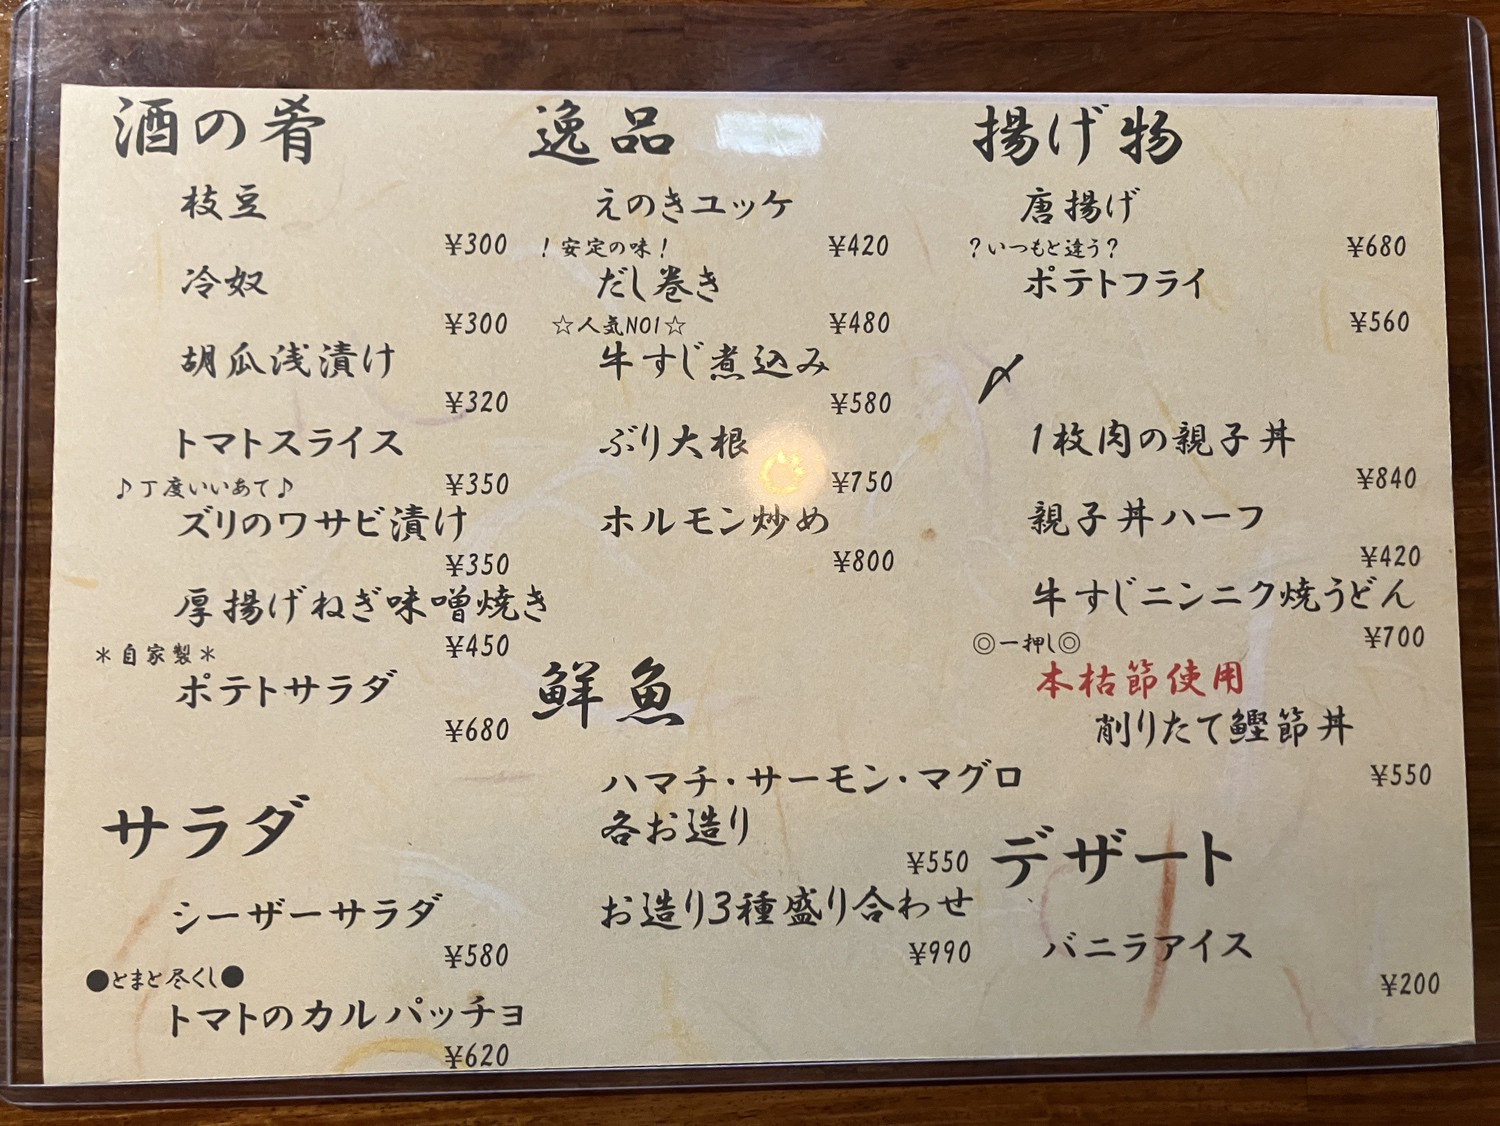 酒の肴
枝豆
¥300
冷奴
¥300
胡瓜浅漬け
¥320
トマトスライス
¥350
♪丁度いいあて♪
ズリのワサビ漬け
¥350
厚揚げねぎ味噌焼き
¥450
＊自家製＊
ポテトサラダ
¥680
サラダ
シーザーサラダ
¥580
●とまと尽くし●
トマトのカルパッチョ
¥620
逸品
えのきユッケ
¥420
！安定の味！
だし巻き
¥480
☆人気NO1☆
牛すじ煮込み
¥580
ぶり大根
¥750
ホルモン炒め
¥800
鮮魚
ハマチ・サーモン・マグロ
各お造り
¥550
お造り3種盛り合わせ
¥990
揚げ物
唐揚げ
¥680
？いつもと違う？
ポテトフライ
¥560
〆
1枚肉の親子丼
¥840
親子丼ハーフ
¥420
牛すじニンニク焼うどん
¥700
◎一押し◎
本枯節使用
削りたて鰹節丼
¥550
デザート
バニラアイス
¥200